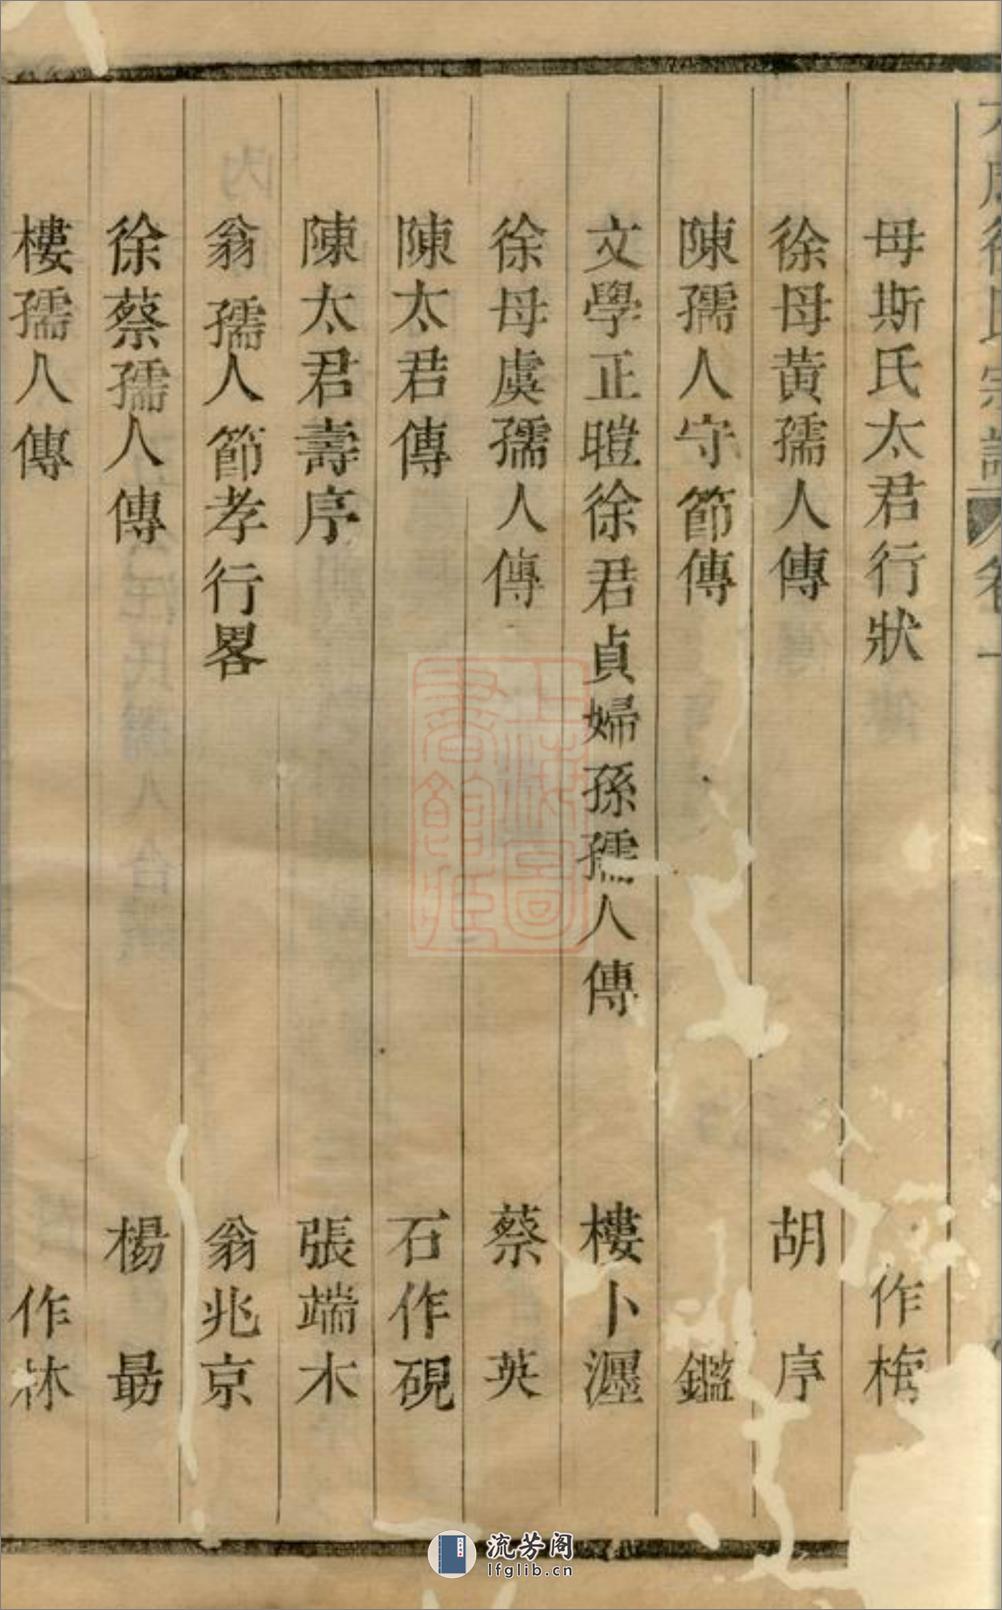 徐氏宗譜 卷一
母斯氏太君行狀 作梅
徐母黃孺人傳 胡序
陳孺人守節傳 鑑
文學正暟徐君貞婦孫孺人傳 樓卜瀍
徐母虞孺人傳 蔡英
陳太君傳 石作硯
陳太君壽序 張端木
翁孺人節孝行畧 翁兆京
徐蔡孺人傳 楊勗
樓孺人傳 作林
上海圖書館藏
流芳阁
lfglib.cn